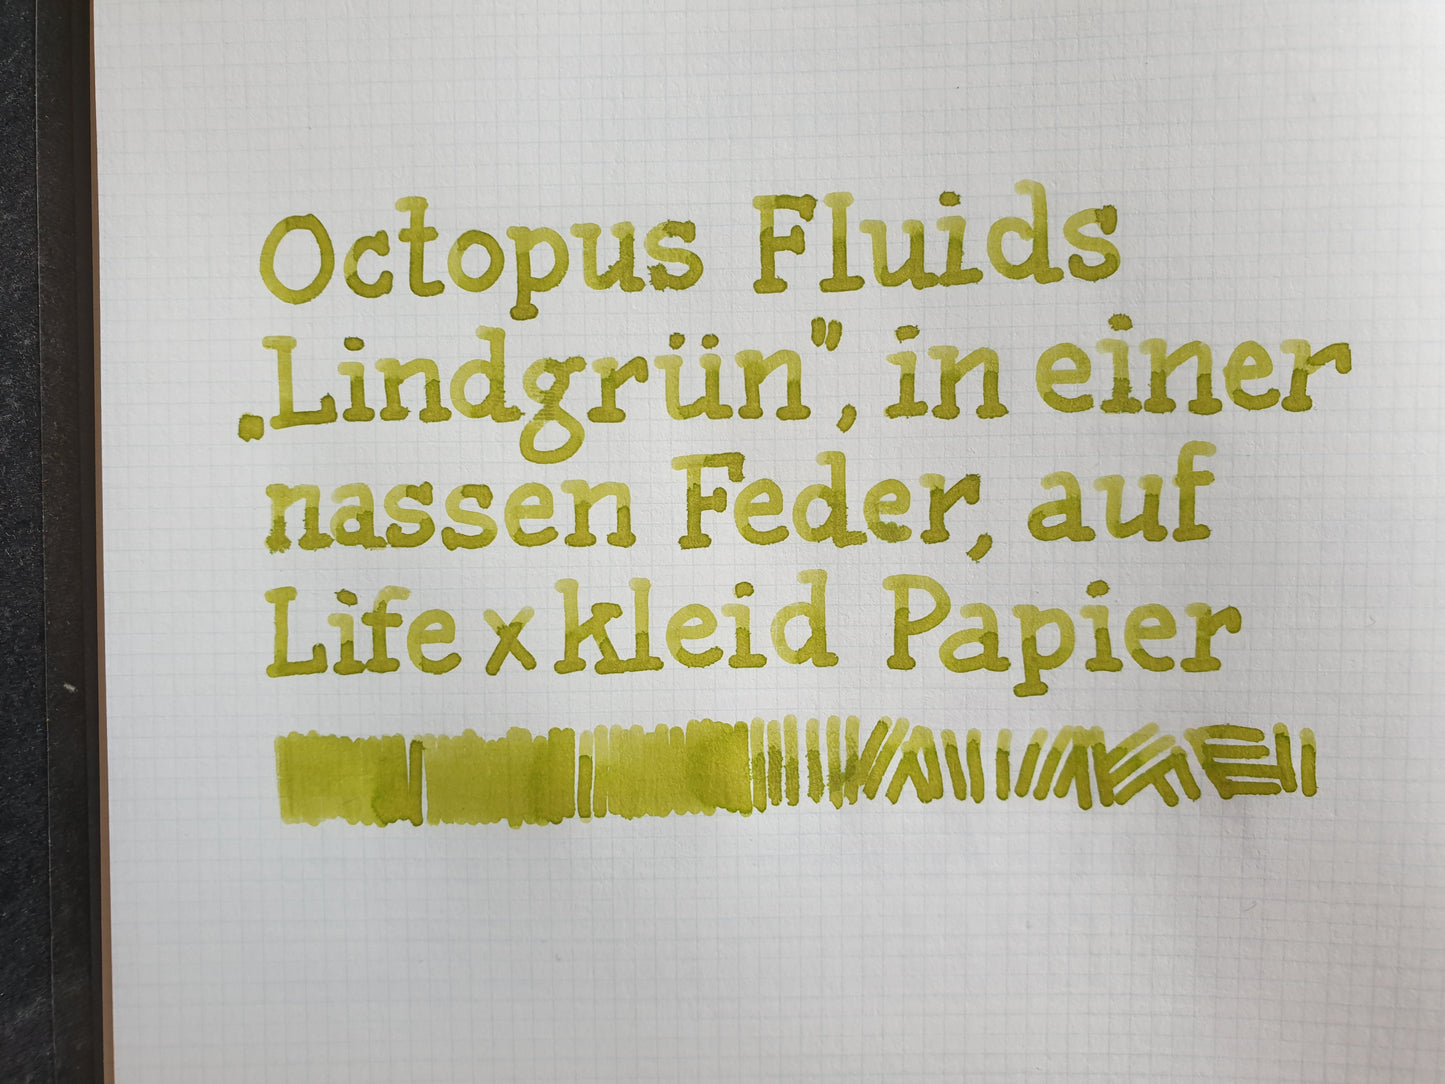 Octopus Fluids
„Lindgrün", in einer
nassen Feder, auf
Life x kleid Papier